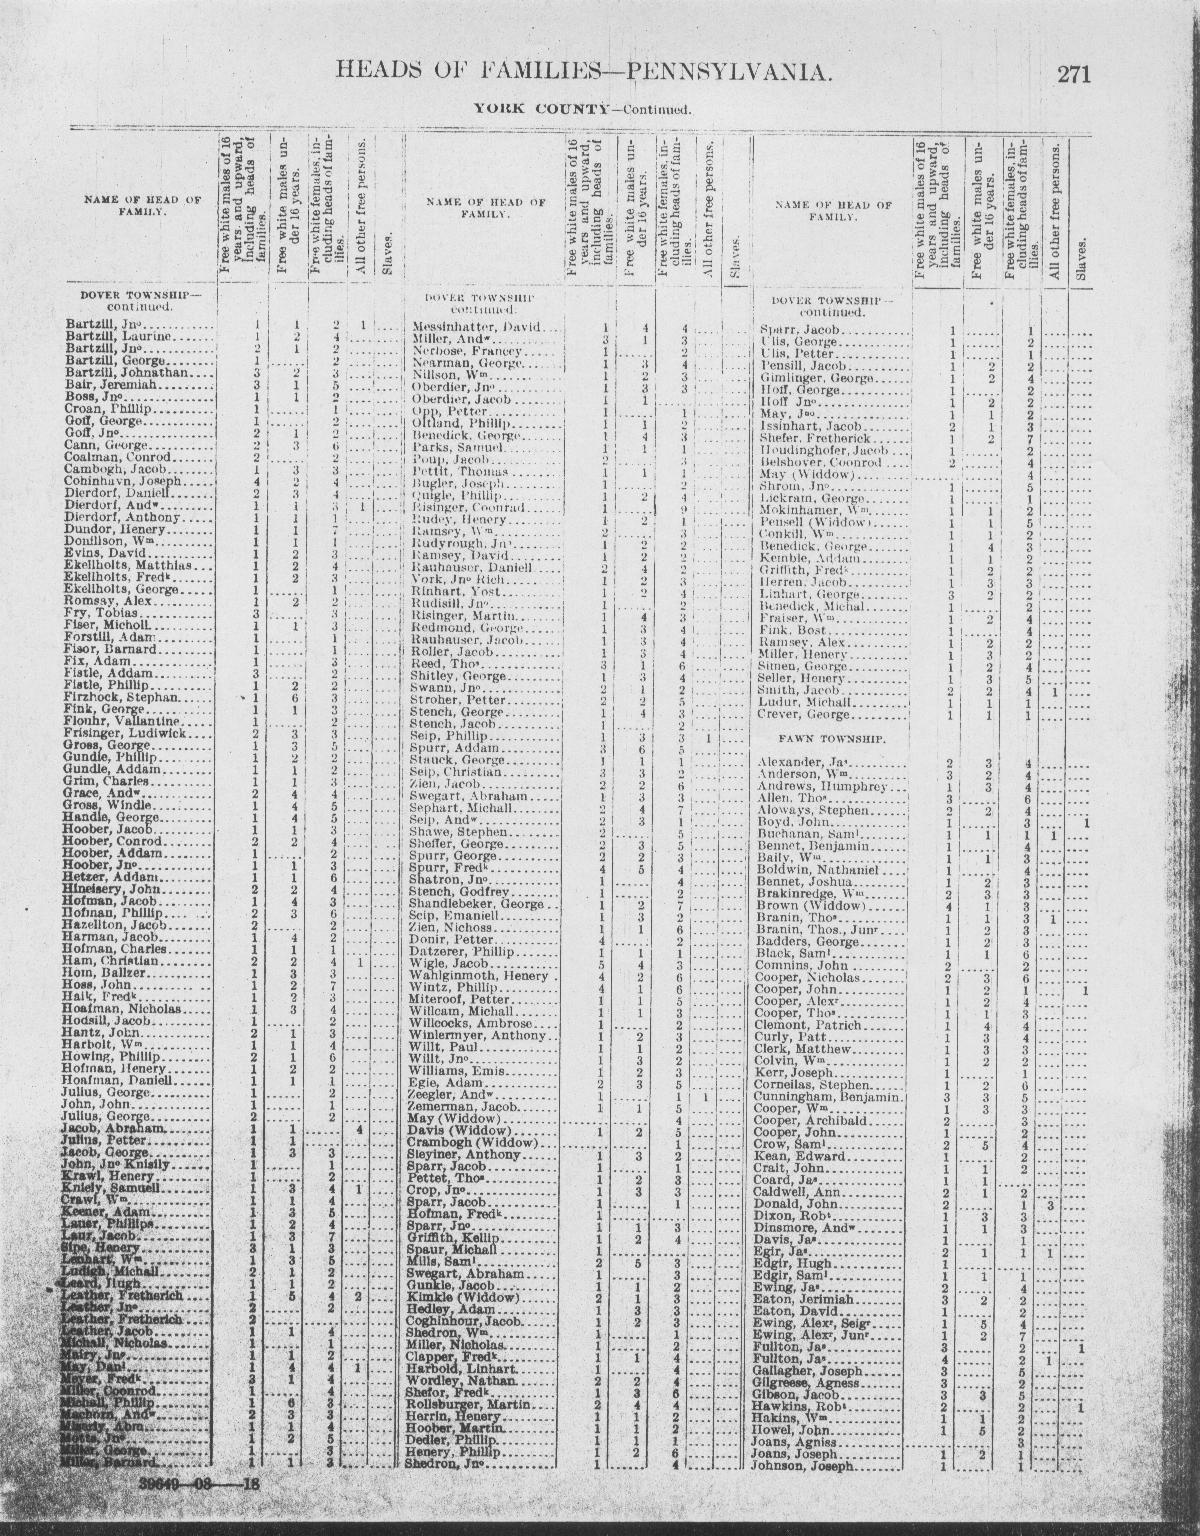 HEADS OF FAMILIES—PENNSYLVANIA. 271
YORK COUNTY—Continued.
NAME OF HEAD OF FAMILY.
Free white males of 16 years and upward, including heads of families.
Free white males under 16 years.
Free white females, including heads of families.
All other free persons.
Slaves.
DOVER TOWNSHIP—continued.
Bartzill, Jnᵒ 1 1 2 1
Bartzill, Laurine 1 2 4
Bartzill, Jnᵒ 2 1 2
Bartzill, George 1 2
Bartzill, Johnathan 3 2 3
Bair, Jeremiah 3 1 5
Boss, Jnᵒ 1 1 2
Croan, Phillip 1 1
Goff, George 1 2
Goff, Jnᵒ 2 1 6
Cann, George 2 3 6
Coalman, Conrod 2 2
Cambogh, Jacob 1 3 3
Cohinhavn, Joseph 4 2 4
Dierdorf, Daniell 2 3 4
Dierdorf, Andʷ 1 1 3 1
Dierdorf, Anthony 1 1 1
Dundor, Henery 1 1 7
Donillson, Wᵐ 1 1 1
Evins, David 1 2 3
Ekellholts, Matthias 1 2 4
Ekellholts, Fredᵏ 1 2 3
Ekellholts, George 1 1
Romsay, Alex 1 2 2
Fry, Tobias 3 3
Fiser, Micholl 1 1 3
Forstill, Adam 1 1
Fisor, Barnard 1 1
Fix, Adam 1 3
Fistle, Addam 3 2
Fistle, Phillip 1 2 2
Firzhock, Stephan 1 6 3
Fink, George 1 1 3
Flouhr, Vallantine 1 2
Frisinger, Ludiwick 2 3 3
Gross, George 1 3 5
Gundle, Phillip 1 2 2
Gundle, Addam 1 1 2
Grim, Charles 1 1 3
Grace, Andʷ 2 4 4
Gross, Windle 1 4 5
Handle, George 1 4 5
Hoober, Jacob 1 1 3
Hoober, Conrod 2 2 4
Hoober, Addam 1 2
Hoober, Jnᵒ 1 1 3
Hetzer, Addam 1 1 6
Hineisery, John 2 2 4
Hofman, Jacob 1 4 3
Hofman, Phillip 2 3 6
Hazellton, Jacob 2 2
Harman, Jacob 1 4 2
Hofman, Charles 1 1 1
Ham, Christian 2 2 4 1
Hom, Ballzer 1 3 3
Hoss, John 1 2 7
Haik, Fredᵏ 1 2 3
Hoafman, Nicholas 1 3 4
Hodsill, Jacob 1 2
Hantz, John 2 1 3
Harbolt, Wᵐ 1 1 4
Howing, Phillip 2 1 6
Hofman, Henery 1 2 2
Hoafman, Daniell 1 1 1
Julius, George 1 2
John, John 1 1
Julius, George 2 2
Jacob, Abraham 1 1 4
Julius, Petter 1 1
Jacob, George 1 3 3
John, Jnᵒ Knisily 1 1
Krawl, Henery 1 2
Kniely, Samuell 1 3 4 1
Crawl, Wᵐ 1 1 4
Keener, Adam 1 3 5
Lauer, Phillips 1 2 4
Laur, Jacob 1 3 7
Sipe, Henery 3 1 3
Lenhart, Wᵐ 1 3 5
Ludigh, Michall 2 1 2
Leard, Hugh 1 1 2
Leather, Fretherich 1 5 4 2
Leather, Jnᵒ 2 2
Leather, Fretherich 2
Leather, Jacob 1 1 4
Michall, Nicholas 1 1
Mairy, Jnᵒ 1 1 2
May, Danˡ 1 4 4 1
Meyer, Fredᵏ 3 1 4
Miller, Coonrod 1 4
Michall, Phillip 1 6 3
Machorn, Andʷ 2 3 3
Moserly, Abm 1 1 4
Motts, Jnᵒ 1 2 5
Miller, George 1 3
Miller, Barnard 1 1 3
39649—08——18
NAME OF HEAD OF FAMILY.
Free white males of 16 years and upward, including heads of families.
Free white males under 16 years.
Free white females, including heads of families.
All other free persons.
Slaves.
DOVER TOWNSHIP—continued.
Messinhatter, David 1 4 4
Miller, Andʷ 3 1 3
Nerbose, Francey 1 2
Nearman, George 1 3 4
Nillson, Wᵐ 1 2 3
Oberdier, Jnᵒ 1 3 3
Oberdier, Jacob 1 1
Opp, Petter 1 1
Oltland, Phillip 1 1 2
Benedick, George 1 4 3
Parks, Samuel 1 1 1
Poup, Jacob 2 3
Pettit, Thomas 1 1 1
Bugler, Joseph 1 2
Quigle, Phillip 1 2 4
Risinger, Coonrad 1 9
Rudey, Henery 1 2 1
Ramsey, Wᵐ 2 3
Rudyrough, Jnᵒ 1 2 2
Ramsey, David 1 2 2
Rauhauser, Daniell 2 4 2
York, Jnᵒ Rich 1 2 3
Rinhart, Yost 1 2 4
Rudisill, Jnᵒ 1 2
Risinger, Martin 1 4 3
Redmond, George 1 3 4
Rauhauser, Jacob 1 3 4
Roller, Jacob 1 3 4
Reed, Thoˢ 3 1 6
Shitley, George 1 3 4
Swann, Jnᵒ 2 1 2
Stroher, Petter 2 2 5
Stench, George 1 4 3
Stench, Jacob 1 2
Seip, Phillip 1 3 3 1
Spurr, Addam 3 6 5
Stauck, George 1 1 1
Seip, Christian 3 3 2
Zien, Jacob 2 2 6
Swegart, Abraham 1 3 3
Sephart, Michall 2 4 7
Seip, Andʷ 2 3 1
Shawe, Stephen 2 5
Sheffer, George 2 3 5
Spurr, George 2 2 3
Spurr, Fredᵏ 4 5 4
Shatron, Jnᵒ 1 4
Stench, Godfrey 1 2
Shandlebeker, George 1 2 7
Seip, Emaniell 1 3 2
Zien, Nichoss 1 1 6
Donir, Petter 4 2
Datzerer, Phillip 1 1 1
Wigle, Jacob 5 4 3
Wahlginmoth, Henery 4 2 6
Wintz, Phillip 4 1 6
Miteroof, Petter 1 1 5
Willcam, Michall 1 1 3
Willcocks, Ambrose 1 2
Winlermyer, Anthony 1 2 3
Willt, Paul 1 1 2
Willt, Jnᵒ 1 3 2
Williams, Emis 1 2 3
Egie, Adam 2 3 5
Zeegler, Andʷ 1 1 1
Zemerman, Jacob 1 1 5
May (Widdow) 4
Davis (Widdow) 1 2 5
Crambogh (Widdow) 1
Sleyiner, Anthony 1 3 2
Sparr, Jacob 1 1
Pettet, Thoˢ 1 2 3
Crop, Jnᵒ 1 3 3
Sparr, Jacob 1 1
Hofman, Fredᵏ 1
Sparr, Jnᵒ 1 1 3
Griffith, Kellip 1 2 4
Spaur, Michall 1
Mills, Samˡ 2 5 3
Swegart, Abraham 1 3
Gunkle, Jacob 1 1 2
Kimkle (Widdow) 2 1 3
Hedley, Adam 1 3 3
Coghinhour, Jacob 1 2 3
Shedron, Wᵐ 1 1
Miller, Nicholas 1 2
Clapper, Fredᵏ 1 1 4
Harbold, Linhart 1 4
Wordley, Nathan 2 2 4
Shefor, Fredᵏ 1 3 6
Rollsburger, Martin 2 4 4
Herrin, Henery 1 1 2
Hoober, Martin 1 1 2
Dedler, Phillip 1 1 1
Henery, Phillip 1 2 6
Shedron, Jnᵒ 1 4
NAME OF HEAD OF FAMILY.
Free white males of 16 years and upward, including heads of families.
Free white males under 16 years.
Free white females, including heads of families.
All other free persons.
Slaves.
DOVER TOWNSHIP—continued.
Sparr, Jacob 1 1
Ulis, George 1 2
Ulis, Petter 1 1
Pensill, Jacob 1 2 2
Gimlinger, George 1 2 4
Hoff, George 1 2
Hoff Jnᵒ 1 2 2
May, Jnᵒ 1 1 2
Issinhart, Jacob 2 1 3
Shefer, Fretherick 1 2 7
Houdinghofer, Jacob 1 2
Belshover, Coonrod 2 4
May (Widdow) 4
Shrom, Jnᵒ 1 5
Lickram, George 1 1
Mokinhamer, Wᵐ 1 1 2
Pensell (Widdow) 1 1 5
Conkill, Wᵐ 1 1 2
Benedick, George 1 4 3
Kemble, Addam 1 1 2
Griffith, Fredᵏ 1 2 2
Herren, Jacob 1 3 3
Linhart, George 3 2 2
Benedick, Michal 1 2
Fraiser, Wᵐ 1 2 4
Fink, Bost 1 4
Ramsey, Alex 1 2 2
Miller, Henery 1 3 2
Simen, George 1 2 4
Seller, Henery 1 3 5
Smith, Jacob 2 2 4 1
Ludur, Michall 1 1 1
Crever, George 1 1 1
FAWN TOWNSHIP.
Alexander, Jaˢ 2 3 4
Anderson, Wᵐ 3 2 4
Andrews, Humphrey 1 3 4
Allen, Thoˢ 3 6
Aloways, Stephen 2 2 4
Boyd, John 1 3 1
Buchanan, Samˡ 1 1 1 1
Bennet, Benjamin 1 4
Baily, Wᵐ 1 1 3
Boldwin, Nathaniel 1 4
Bennet, Joshua 1 2 3
Brakinredge, Wᵐ 2 3 3
Brown (Widdow) 4 1 3
Branin, Thoˢ 1 1 3 1
Branin, Thos., Junʳ 1 2 3
Badders, George 1 2 3
Black, Samˡ 1 1 6
Comnins, John 2 2
Cooper, Nicholas 2 3 6
Cooper, John 1 2 1 1
Cooper, Alexʳ 1 2 4
Cooper, Thoˢ 1 1 3
Clemont, Patrich 1 4 4
Curly, Patt 1 3 4
Clerk, Matthew 1 3 3
Colvin, Wᵐ 1 2 2
Kerr, Joseph 1 1
Corneilas, Stephen 1 2 6
Cunningham, Benjamin 3 3 5
Cooper, Wᵐ 1 3 3
Cooper, Archibald 2 3
Cooper, John 1 2
Crow, Samˡ 2 5 4
Kean, Edward 1 2
Crait, John 1 1 2
Coard, Jaˢ 1 1
Caldwell, Ann 2 1 2
Donald, John 2 1 3
Dixon, Robᵗ 1 3 3
Dinsmore, Andʷ 1 1 3
Davis, Jaˢ 1 1
Egir, Jaˢ 2 1 1 1
Edgir, Hugh 1 1
Edgir, Samˡ 1 1 1
Ewing, Jaˢ 2 4
Eaton, Jerimiah 3 2 2
Eaton, David 1 2
Ewing, Alexʳ, Seigʳ 1 5 4
Ewing, Alexʳ, Junʳ 1 2 7
Fullton, Jaˢ 3 2 1
Fullton, Jaˢ 4 2 1
Gallagher, Joseph 3 5
Gilgreese, Agness 3 2
Gibson, Jacob 3 3 5
Hawkins, Robᵗ 2 2 1
Hakins, Wᵐ 1 1 2
Howel, John 1 5 2
Joans, Agniss 3
Joans, Joseph 1 2 1
Johnson, Joseph 1 1